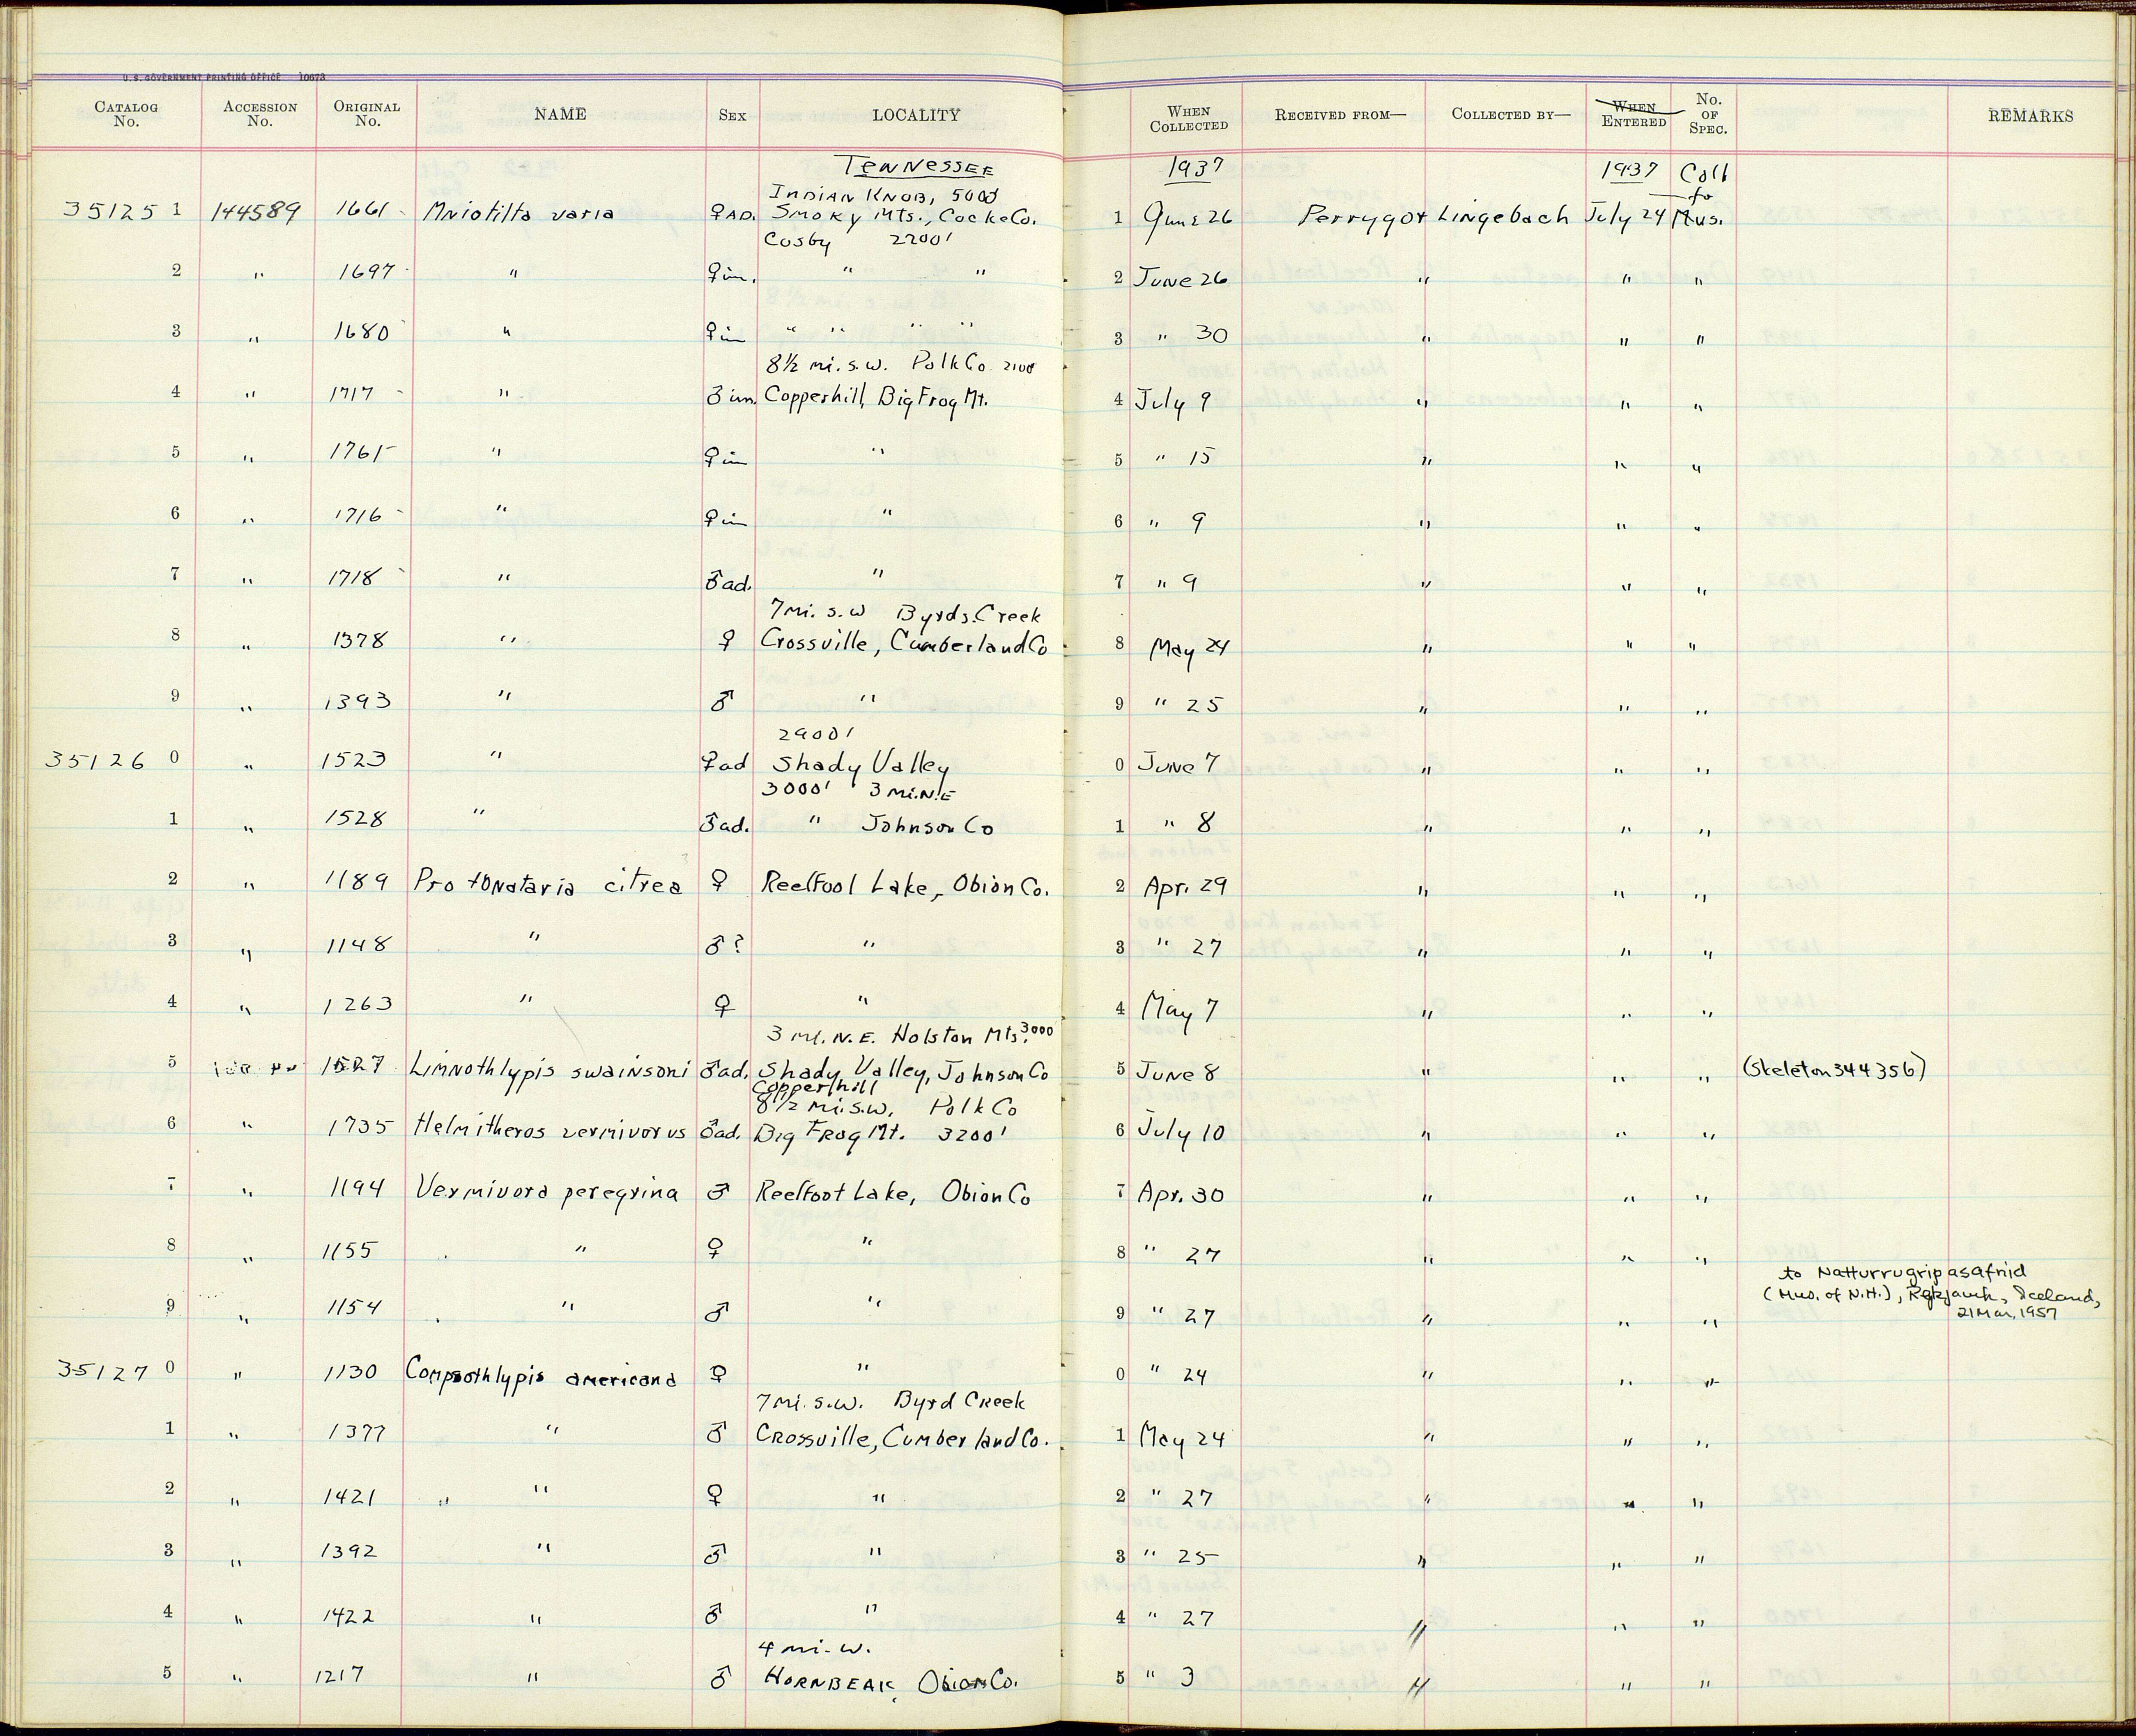 U. S. GOVERNMENT PRINTING OFFICE 10673
CATALOG No. ACCESSION No. ORIGINAL No. NAME SEX LOCALITY WHEN COLLECTED RECEIVED FROM— COLLECTED BY— WHEN ENTERED No. OF SPEC. REMARKS
TENNESSEE 1937 1937 Coll
INDIAN KNOB, 5000 to
35125 1 144589 1661 Mniotilta varia ♀AD. Smoky Mts., Cocke Co. 1 June 26 Perrygo & Lingebach July 24 Mus.
Cosby 2200'
2 " 1697 " ♀im. " " 2 June 26 " " "
3 " 1680 " ♀im " " " " 3 " 30 " " "
8½ mi. s.w. Polk Co. 2100
4 " 1717 " ♂im. Copperhill, Big Frog Mt. 4 July 9 " " "
5 " 1761 " ♀im " 5 " 15 " " "
6 " 1716 " ♀im " 6 " 9 " " "
7 " 1718 " ♂ad. " 7 " 9 " " "
7 mi. s.w Byrds. Creek
8 " 1378 " ♀ Crossville, Cumberland Co 8 May 24 " " "
9 " 1393 " ♂ " 9 " 25 " " "
2900'
35126 0 " 1523 " ♀ad Shady Valley 0 June 7 " " "
3000' 3 mi. N.E
1 " 1528 " ♂ad. " Johnson Co 1 " 8 " " "
2 " 1189 Protonotaria citrea ♀ Reelfool Lake, Obion Co. 2 Apr. 29 " " "
3 " 1148 " ♂? " 3 " 27 " " "
4 " 1263 " ♀ " 4 May 7 " " "
3 mi. N.E. Holston Mts. 3000
5 1527 Limnothlypis swainsoni ♂ad. Shady Valley, Johnson Co 5 June 8 " " " (Skeleton 344356)
Copperhill
8½ mi. s.w. Polk Co
6 " 1735 Helmitheros vermivorus ♂ad. Big Frog Mt. 3200' 6 July 10 " " "
7 " 1194 Vermivora peregrina ♂ Reelfoot Lake, Obion Co 7 Apr. 30 " " "
8 " 1155 " ♀ " 8 " 27 " " "
to Natturrugripasafnid
(Mus. of N.H.), Rekjavik, Iceland,
9 " 1154 " ♂ " 9 " 27 " " " 21 Mar, 1957
35127 0 " 1130 Compsothlypis americana ♀ " 0 " 24 " " "
7 mi. s.w. Byrd Creek
1 " 1377 " ♂ Crossville, Cumberland Co. 1 May 24 " " "
2 " 1421 " " ♀ " 2 " 27 " " "
3 " 1392 " ♂ " 3 " 25 " " "
4 " 1422 " ♂ " 4 " 27 " " "
4 mi. w.
5 " 1217 " ♂ HORNBEAK, Obion Co. 5 " 3 " " "